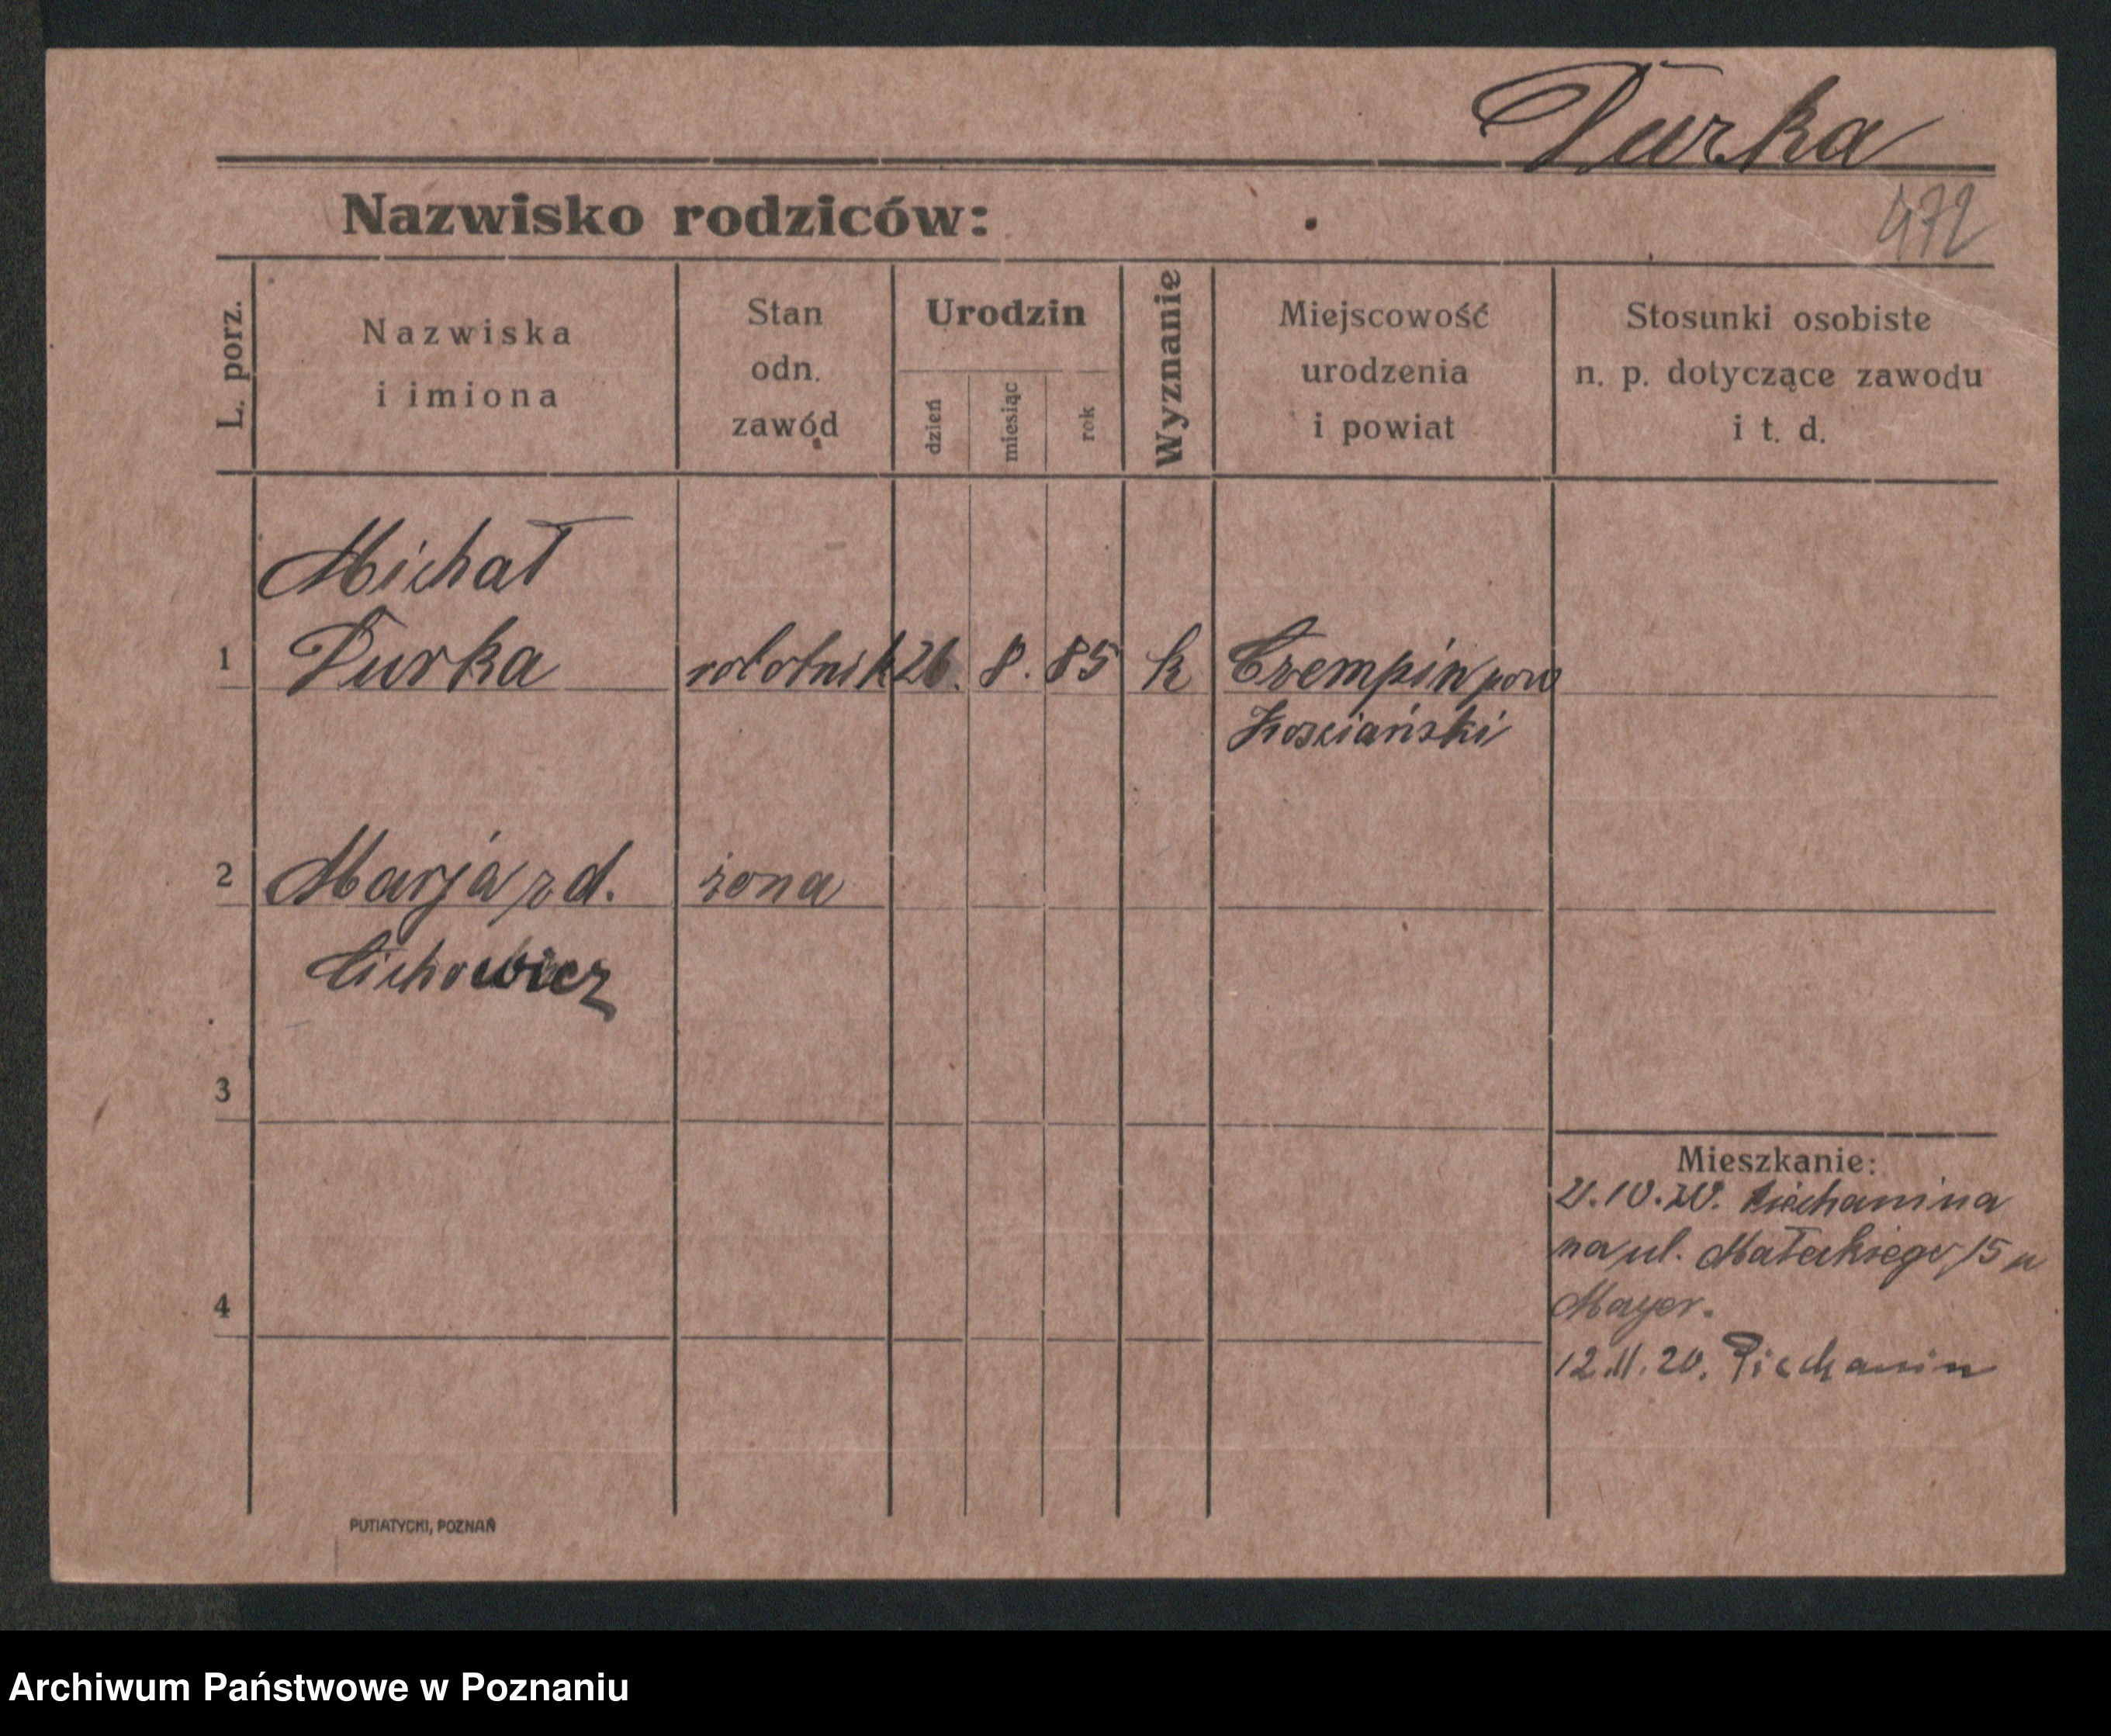 Turka
Nazwisko rodziców:
472
L. porz.
Nazwiska
i imiona
Stan
odn.
zawód
Urodzin
dzień
miesiąc
rok
Wyznanie
Miejscowość
urodzenia
i powiat
Stosunki osobiste
n. p. dotyczące zawodu
i t. d.
Michał
1 Turka robotnik 26. 8. 85 k Czempin pow
Kosciański
2 Marja z d. żona
Cichowicz
3
Mieszkanie:
na ul. Małeckiego 15 u
4
Mayer.
12.11.20. Piechanin
PUTIATYCKI, POZNAŃ
Archiwum Państwowe w Poznaniu